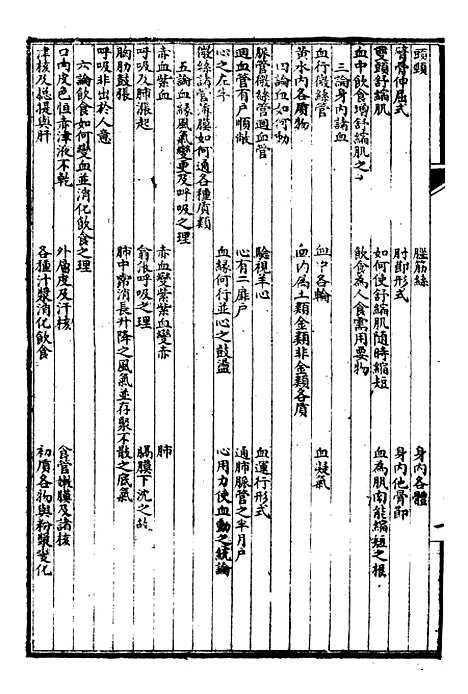 頭頸　脞筋絲　身內各體
臂骨伸屈式　肘節形式　身內他骨節
雙頭舒縮肌　如何使舒縮肌隨時縮短　血為肌肉能縮短之根
血中飲食增舒縮肌之力　飲食為人食需用要物
三論身內諸血
血行微絲管　血中各輪　血凝氣
黃水內各廢物　血內為土類金類非金類各質
四論血如何動
脈管微絲管迴血管　驗視羊心　血運行形式
迴血管有戶順敞　心有二扉戶　通肺脈管之半月戶
心之左半　血緣何行並心之鼓盪　心用力使血動之統論
微絲諸管薄膜如何通各種質類
五論血緣風氣變更及呼吸之理
赤血紫血　赤血變紫紫血變赤　肺
呼吸及肺漲起　翕張呼吸之理　膈膜下沈之故
胸肋鼓張　肺中常消長升降之風氣並存聚不散之底氣
呼吸非出於人意
六論飲食如何變血並消化飲食之理
口內皮色恒赤津液不乾　外膚皮及汗核　食管嫩膜及諸核
津核及總提與肝　各種汁漿消化飲食　初質各物與粉漿變化